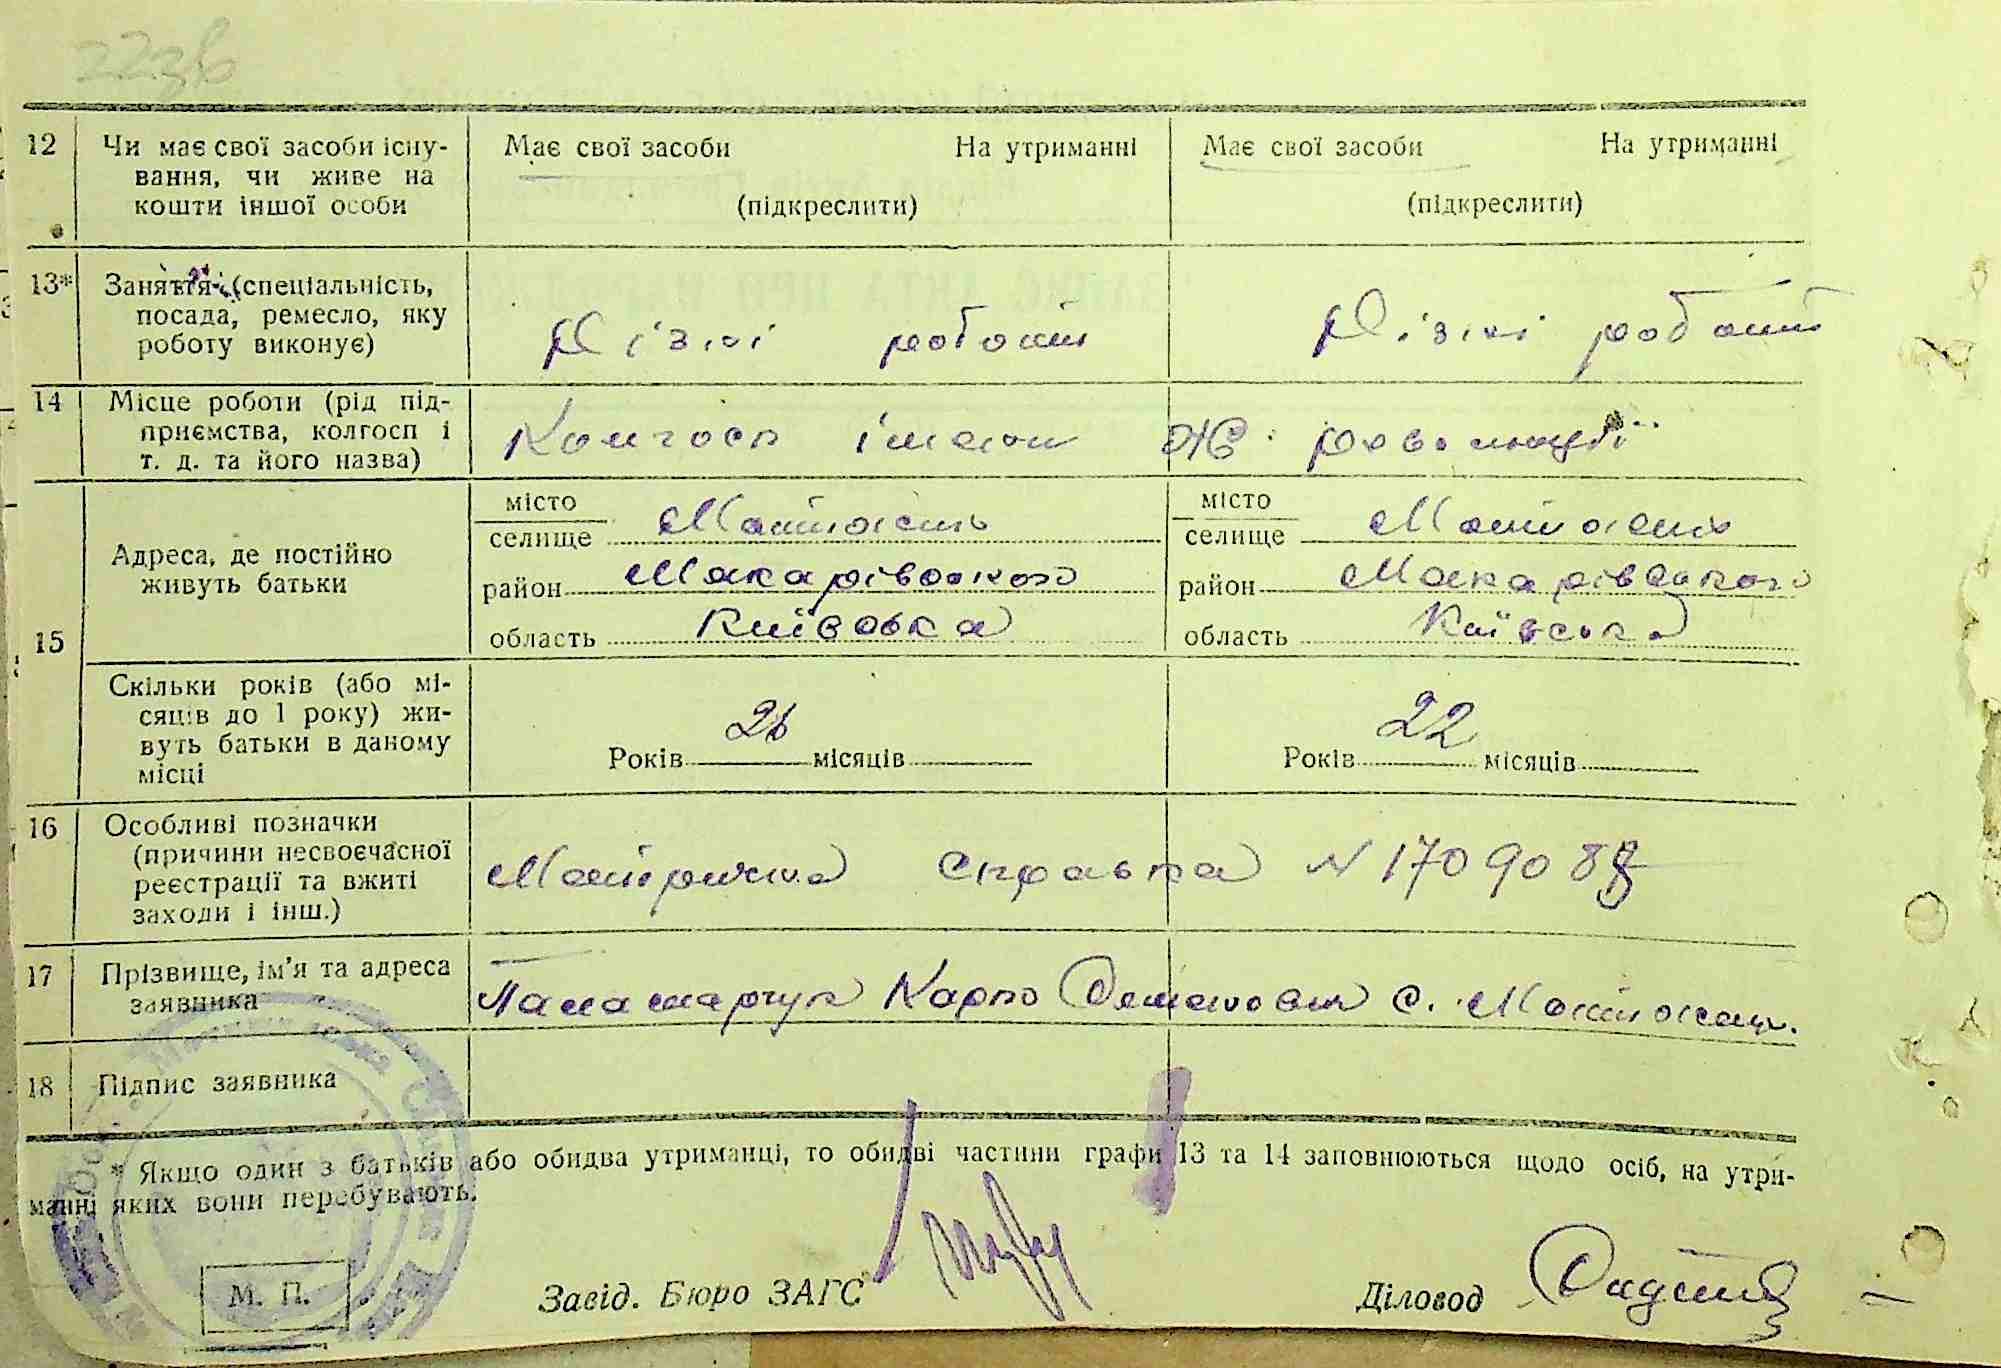 223в
12 Чи має свої засоби існу-
вання, чи живе на
кошти іншої особи
Має свої засоби На утриманні
(підкреслити)
Має свої засоби На утриманні
(підкреслити)
13* Заняття (спеціальність,
посада, ремесло, яку
роботу виконує)
Різні роботи
Різні роботи
14 Місце роботи (рід під-
приємства, колгосп і
т. д. та його назва)
Колгосп імени Ж. революції
15 Адреса, де постійно
живуть батьки
місто
селище Мотижень
район Макарівського
область Київська
місто
селище Мотижень
район Макарівського
область Київська
Скільки років (або мі-
сяців до 1 року) жи-
вуть батьки в даному
місці
Років 26 місяців
Років 22 місяців
16 Особливі позначки
(причини несвоєчасної
реєстрації та вжиті
заходи і інш.)
Справка N 170908
17 Прізвище, ім'я та адреса
заявника
Паламарчук Карпо с. Мотижень.
18 Підпис заявника
* Якщо один з батьків або обидва утриманці, то обидві частини графи 13 та 14 заповнюються щодо осіб, на утри-
манні яких вони перебувають.
М. П.
Завід. Бюро ЗАГС
Діловод